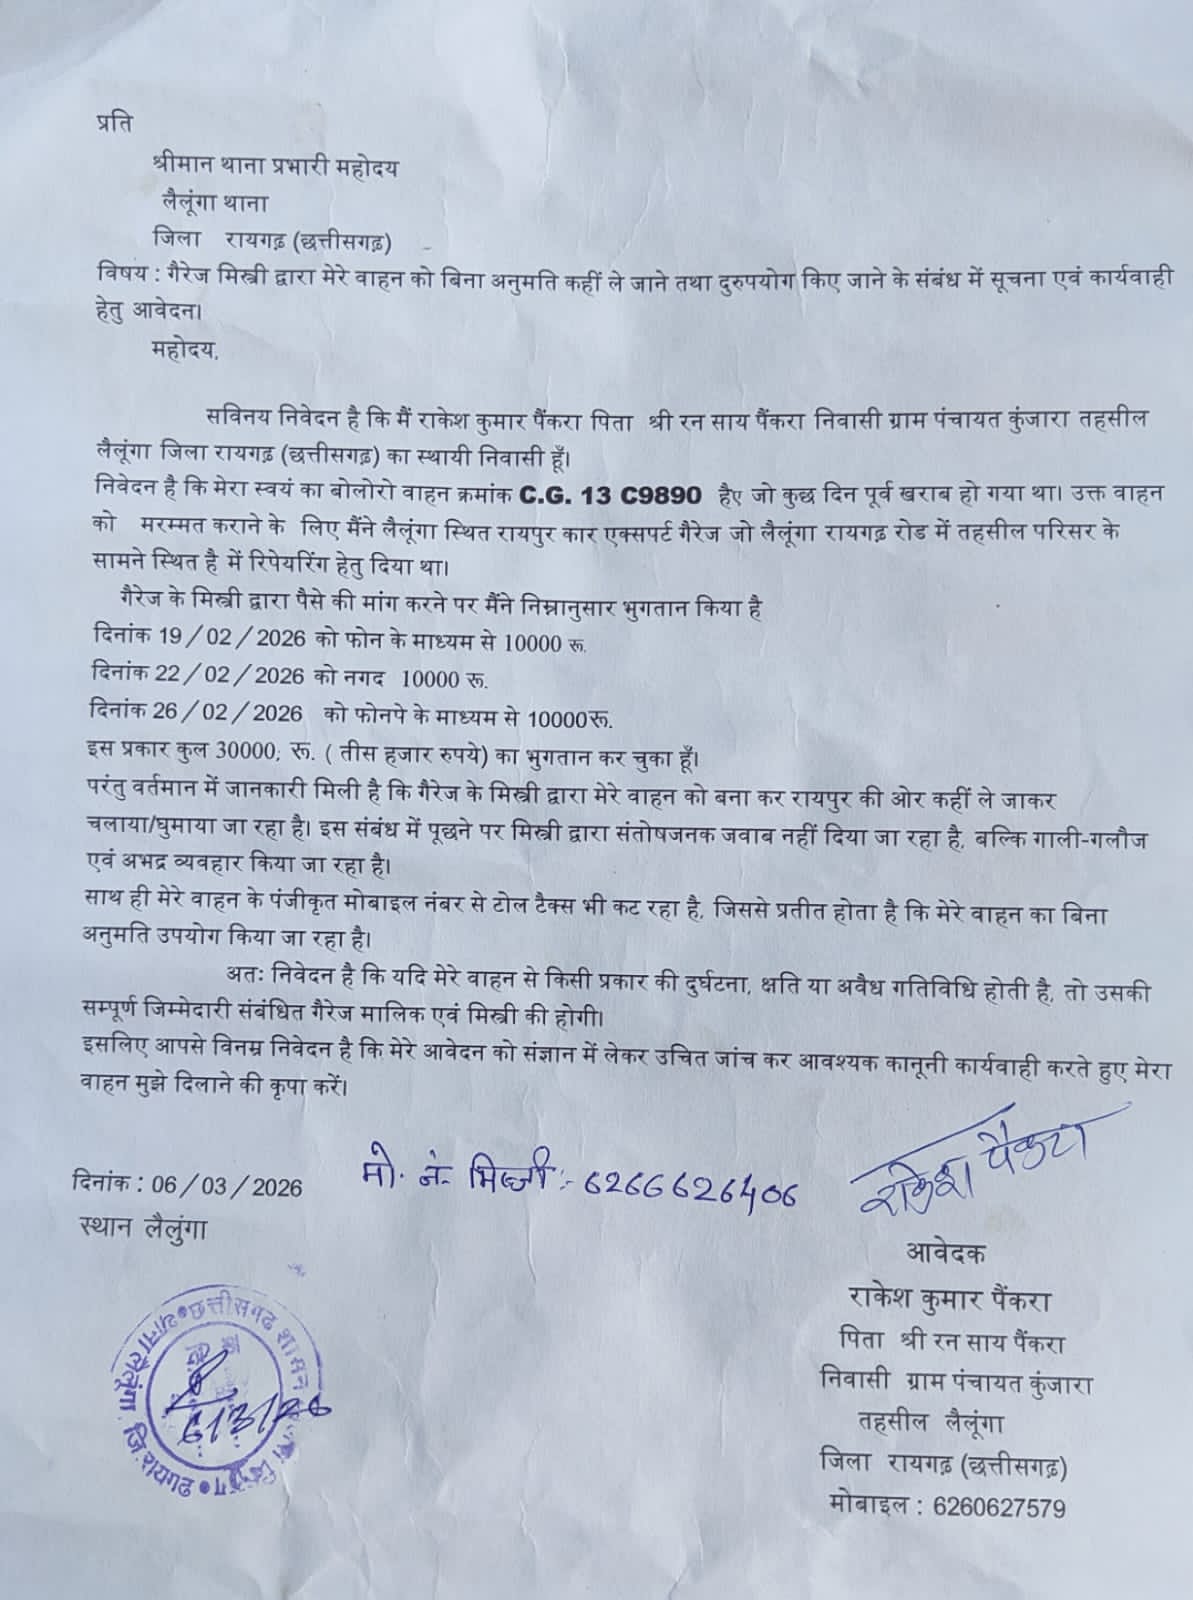 प्रति
श्रीमान थाना प्रभारी महोदय
लैलूंगा थाना
जिला रायगढ़ (छत्तीसगढ़)
विषय : गैरेज मिस्त्री द्वारा मेरे वाहन को बिना अनुमति कहीं ले जाने तथा दुरुपयोग किए जाने के संबंध में सूचना एवं कार्यवाही
हेतु आवेदन।
महोदय,
सविनय निवेदन है कि मैं राकेश कुमार पैंकरा पिता श्री रन साय पैंकरा निवासी ग्राम पंचायत कुंजारा तहसील
लैलूंगा जिला रायगढ़ (छत्तीसगढ़) का स्थायी निवासी हूँ।
निवेदन है कि मेरा स्वयं का बोलोरो वाहन क्रमांक C.G. 13 C9890 हैए जो कुछ दिन पूर्व खराब हो गया था। उक्त वाहन
को मरम्मत कराने के लिए मैंने लैलूंगा स्थित रायपुर कार एक्सपर्ट गैरेज जो लैलूंगा रायगढ़ रोड में तहसील परिसर के
सामने स्थित है में रिपेयरिंग हेतु दिया था।
गैरेज के मिस्त्री द्वारा पैसे की मांग करने पर मैंने निम्नानुसार भुगतान किया है
दिनांक 19/02/2026 को फोन के माध्यम से 10000 रू.
दिनांक 22/02/2026 को नगद 10000 रू.
दिनांक 26/02/2026 को फोनपे के माध्यम से 10000रू.
इस प्रकार कुल 30000; रू. ( तीस हजार रुपये) का भुगतान कर चुका हूँ।
परंतु वर्तमान में जानकारी मिली है कि गैरेज के मिस्त्री द्वारा मेरे वाहन को बना कर रायपुर की ओर कहीं ले जाकर
चलाया/घुमाया जा रहा है। इस संबंध में पूछने पर मिस्त्री द्वारा संतोषजनक जवाब नहीं दिया जा रहा है, बल्कि गाली-गलौज
एवं अभद्र व्यवहार किया जा रहा है।
साथ ही मेरे वाहन के पंजीकृत मोबाइल नंबर से टोल टैक्स भी कट रहा है, जिससे प्रतीत होता है कि मेरे वाहन का बिना
अनुमति उपयोग किया जा रहा है।
अतः निवेदन है कि यदि मेरे वाहन से किसी प्रकार की दुर्घटना, क्षति या अवैध गतिविधि होती है, तो उसकी
सम्पूर्ण जिम्मेदारी संबंधित गैरेज मालिक एवं मिस्त्री की होगी।
इसलिए आपसे विनम्र निवेदन है कि मेरे आवेदन को संज्ञान में लेकर उचित जांच कर आवश्यक कानूनी कार्यवाही करते हुए मेरा
वाहन मुझे दिलाने की कृपा करें।
राकेश पैंकरा
दिनांक : 06/03/2026
मो. नं- :- 6266626406
स्थान लैलुंगा
आवेदक
राकेश कुमार पैंकरा
पिता श्री रन साय पैंकरा
निवासी ग्राम पंचायत कुंजारा
तहसील लैलूंगा
जिला रायगढ़ (छत्तीसगढ़)
मोबाइल : 6260627579
छत्तीसगढ शासन
थाना लैलूंगा, जि.रायगढ
6/3/26